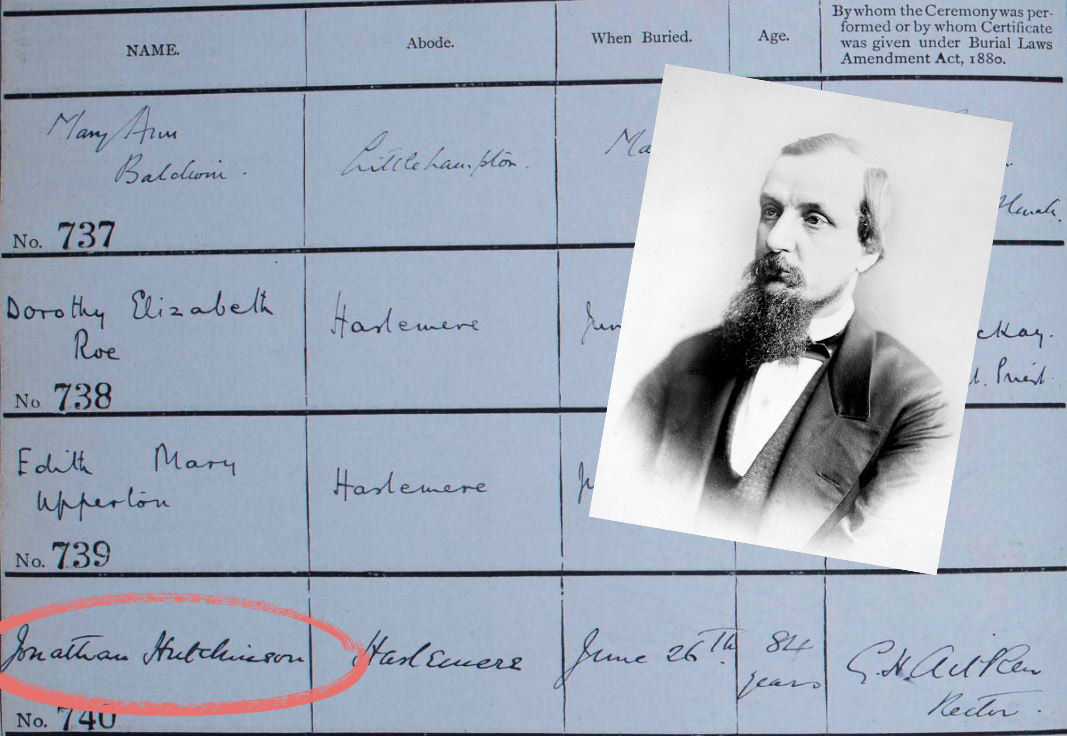 NAME.
Abode.
When Buried.
Age.
By whom the Ceremony was per-
formed or by whom Certificate
was given under Burial Laws
Amendment Act, 1880.
Mary Ann
Baldwin.
No. 737
Littlehampton.
Ma
Dorothy Elizabeth
Roe
No 738
Haslemere
Jun
cKay.
Priest.
Edith Mary
Upperton
No. 739
Haslemere
Jonathan Hutchinson
No. 740
Haslemere
June 26th
84
years
G. H. Aitken
Rector.